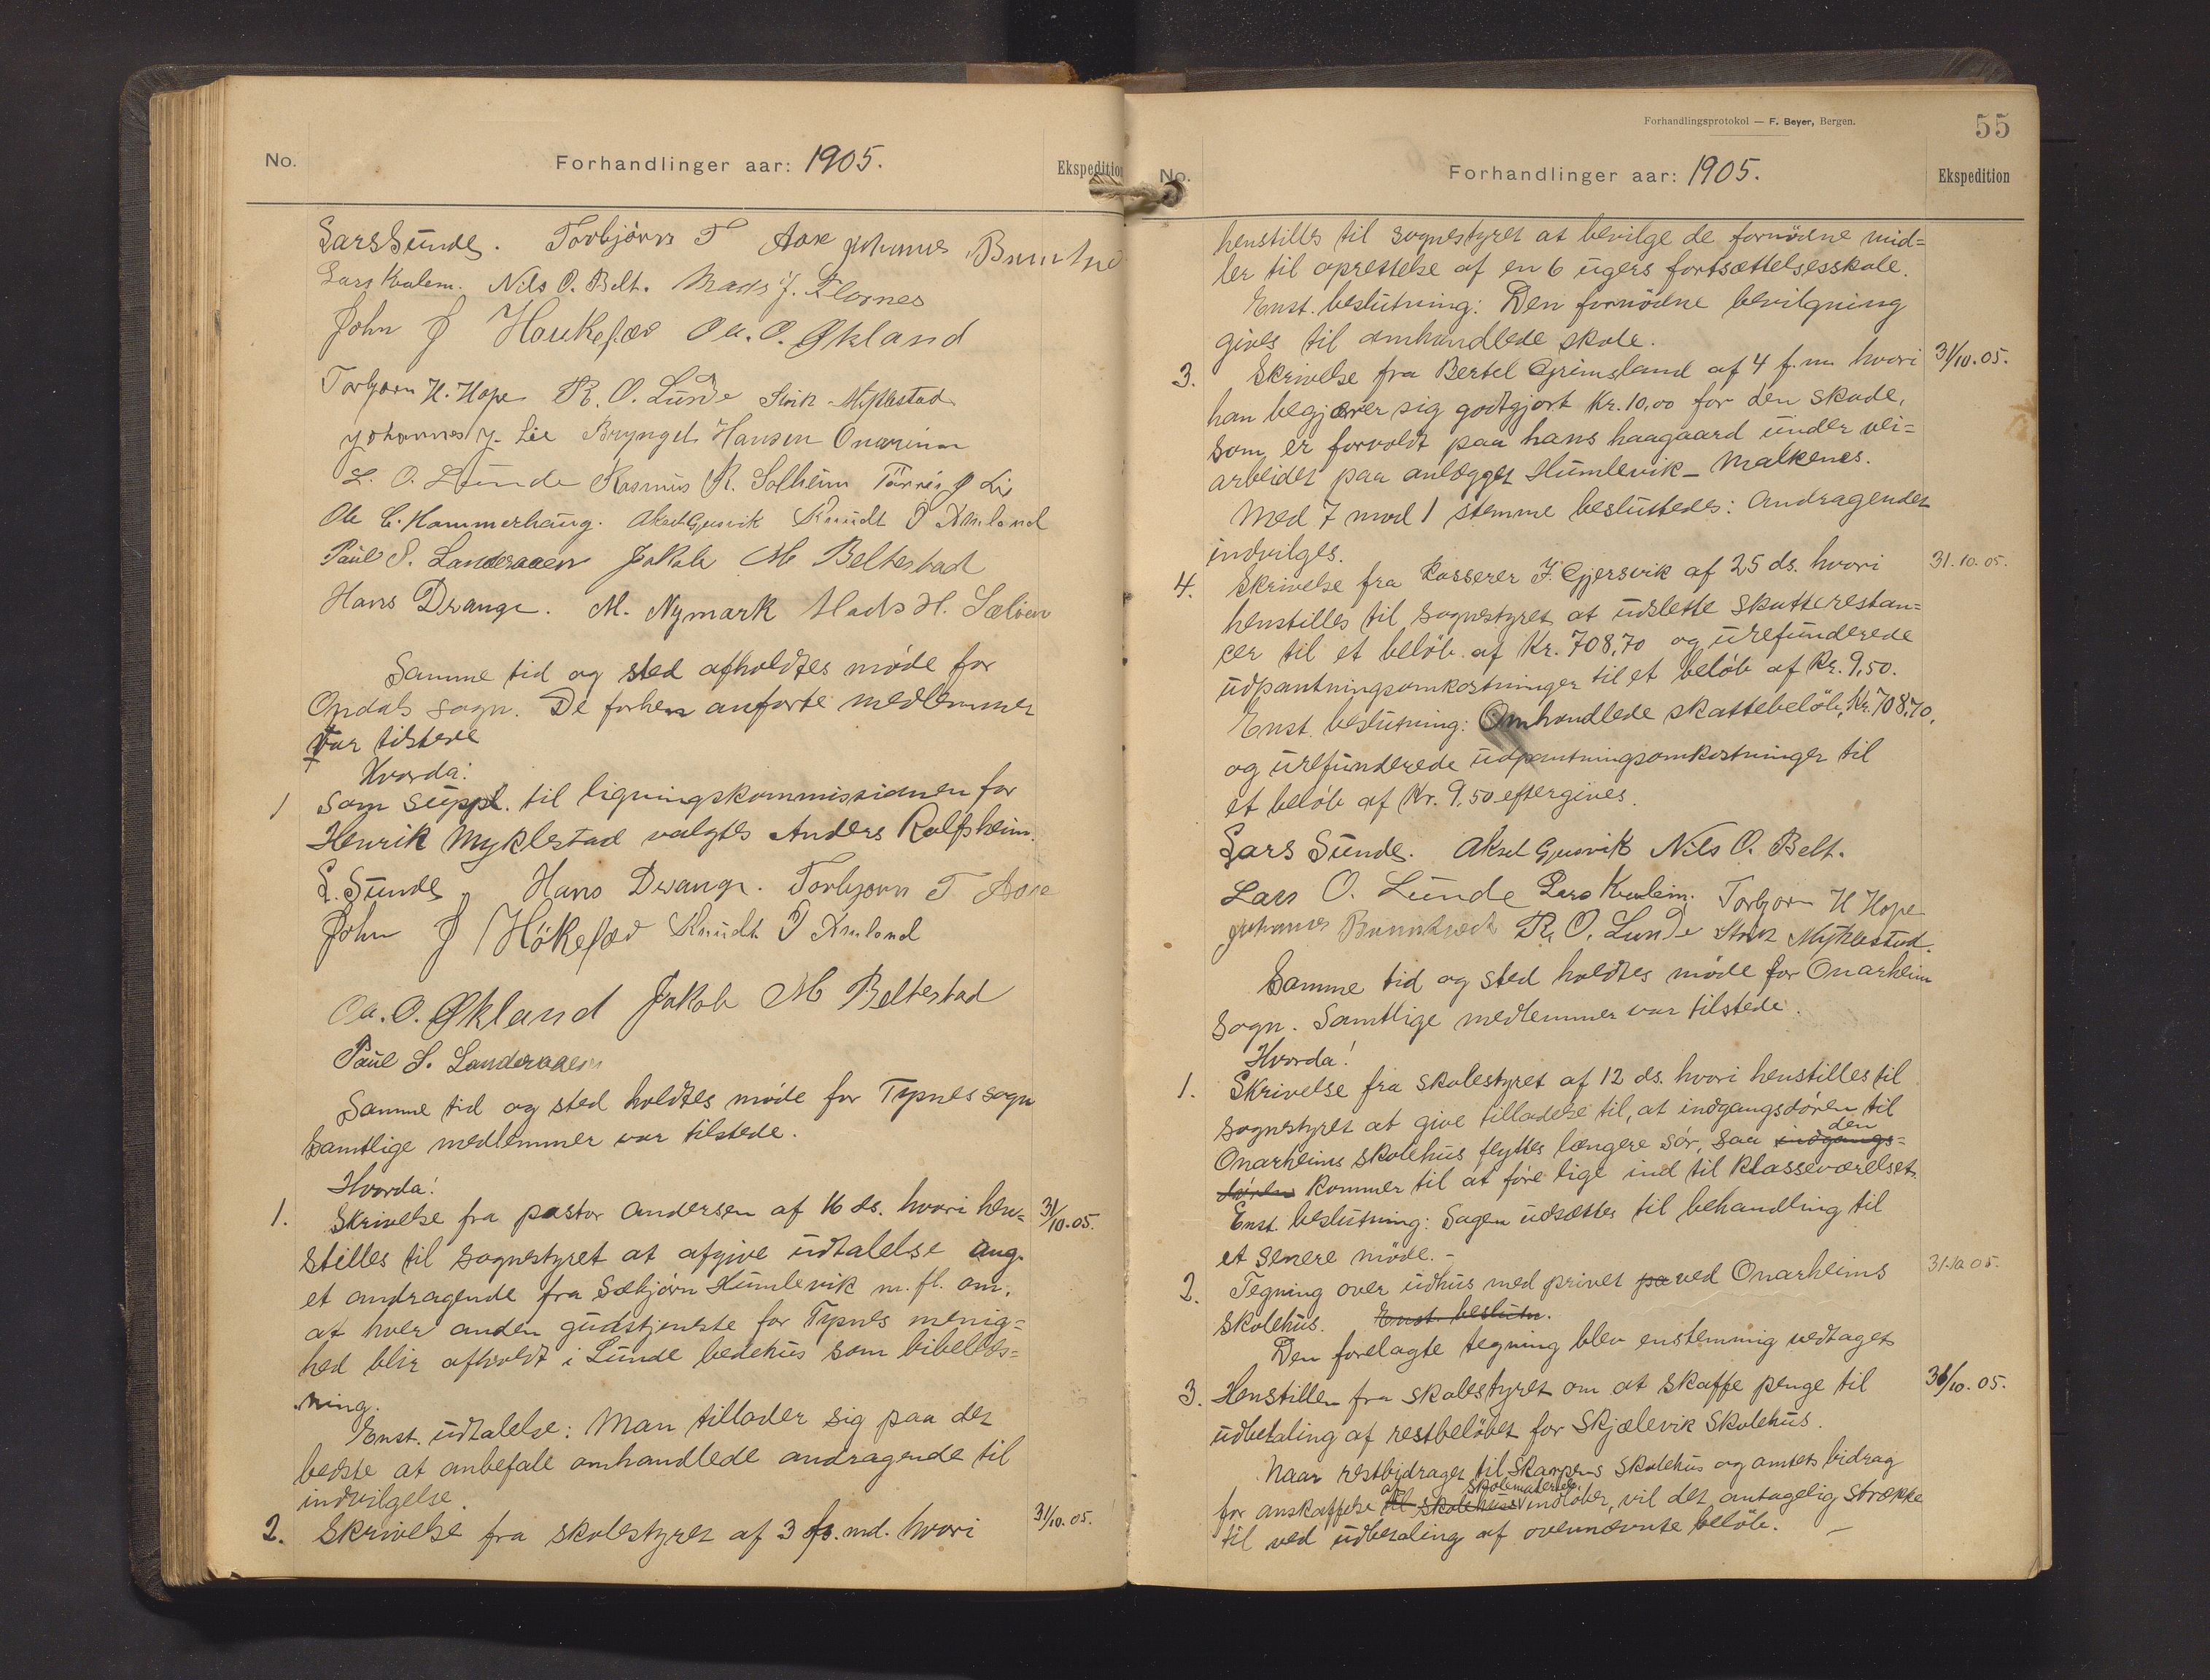 No. Forhandlinger aar: 1905. Ekspedition
Lars Sunde. Torbjörn T Aase Johannes
Lars Kvalem. Nils O. Belt. Mads J. Flornes
John J Haukefær Oa. O. Økland
Torbjørn H. Hope R. O. Lunde Henrik Myklestad
Johannes J. Lie Bryngel Hansen Onarheim
L. O. Lunde Rasmus R. Solheim Tørris J Li
Ole C. Hammerhaug. Aksel Gjersvik Knudt O Amland
Paul S. Landeraaen Jakob M Beltestad
Hans Drange. M. Nymark Mads H. Sæløen
Samme tid og sted afholdtes møde for
Opdals sogn. De forhen anførte medlemmer
var tilstede
Hvorda:
1 Som suppl. til ligningskommissionen for
Henrik Myklestad valgtes Anders Rolfsheim.
L. Sunde Hans Drange. Torbjørn T Aase
John J Hökefær Knudt O Amland
Oa. O. Økland Jakob M Beltestad
Paul S. Landeraaen
Samme tid og sted holdtes møde for Tysnes sogn
Samtlige medlemmer var tilstede.
Hvorda:
1. Skrivelse fra pastor Andersen af 16 ds. hvori hen= 31/10.05.
stilles til sognestyret at afgive udtalelse ang.
et andragende fra Sæbjörn Humlevik m. fl. om,
at hver anden gudstjeneste for Tysnes menig=
hed blir afholdt i Lunde bedehus som bibellæs=
ning.
Enst. udtalelse: Man tillader sig paa det
bedste at anbefale omhandlede andragende til
indvilgelse.
2. Skrivelse fra skolestyret af 3 f. md. hvori 31/10.05.
Forhandlingsprotokol — F. Beyer, Bergen. 55
No. Forhandlinger aar: 1905. Ekspedition
henstilles til sognestyret at bevilge de fornödne mid=
ler til oprettelse af en 6 ugers fortsættelsesskole.
Enst. beslutning: Den fornödne bevilgning
gives til omhandlede skole.
3. Skrivelse fra Bertel Grimsland af 4 f. m. hvori 31/10.05.
han begjærer sig godtgjort Kr. 10,00 for den skade,
som er forvoldt paa hans haagaard under vei=
arbeidet paa anlægget Humlevik – Malkenes.
Med 7 mod 1 stemme besluttedes: Andragendet
indvilges.
4. Skrivelse fra kasserer J. Gjersvik af 25 ds. hvori 31.10.05.
henstilles til sognestyret at udslette skatterestan=
cer til et belöb af Kr. 708,70 og urefunderede
udpantningsomkostninger til et belöb af Kr. 9,50.
Enst. beslutning: Omhandlede skattebelöb, Kr. 708,70,
og urefunderede udpantningsomkostninger til
et belöb af Kr. 9,50 eftergives.
Lars Sunde. Aksel Gjersvik Nils O. Belt.
Lars O. Lunde Lars Kvalem. Torbjørn H Hope
Johannes R. O. Lunde Henrik Myklestad.
Samme tid og sted holdtes møde for Onarheim
Sogn. Samtlige medlemmer var tilstede.
Hvorda:
1. Skrivelse fra skolestyret af 12 ds. hvori henstilles til
sognestyret at give tilladelse til, at indgangsdören til
Onarheims skolehus flyttes længere sör, saa indgangs= den
dören kommer til at före lige ind til klasseværelset.
Enst. beslutning: Sagen udsættes til behandling til
et senere møde. –
2. Tegning over udhus med privet pa ved Onarheims 31.10.05.
skolehus. Enst. beslutn.
Den forelagte tegning blev enstemmig vedtaget
3. Henstillen fra skolestyret om at skaffe penge til 31/10.05.
udbetaling af restbelöbet for Skjælevik skolehus.
Naar restbidraget til Skarpens skolehus og amtets bidrag
for anskaffelse til skolehus af skolemateriel indlöber, vil det antagelig strække
til ved udbetaling af ovennævnte belöb. –